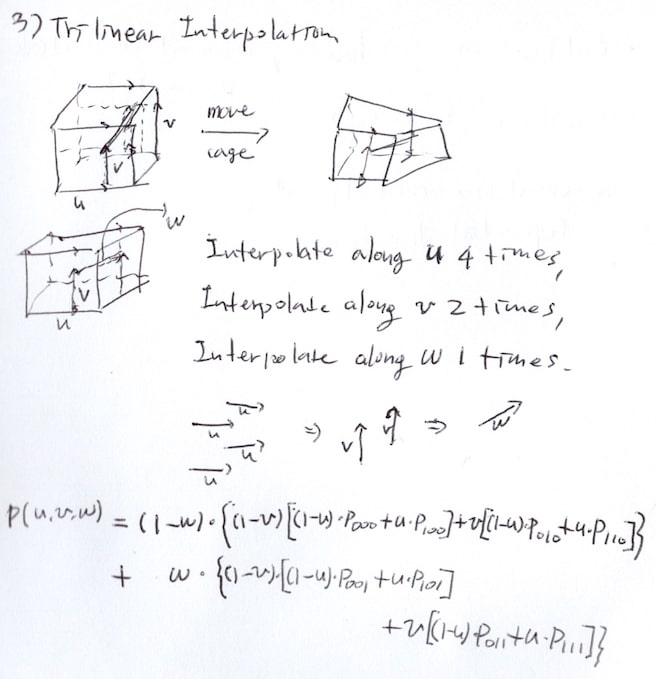 3) Trilinear Interpolation
move
cage
v
v
u
w
v
u
Interpolate along u 4 times,
Interpolate along v 2 times,
Interpolate along w 1 times.
u
u
u
u
⇒
v
v
⇒
w
P(u,v,w) = (1-w)·{(1-v)[(1-u)·P000+u·P100]+v[(1-u)·P010+u·P110]}
+ w·{(1-v)·[(1-u)·P001+u·P101]
+v[(1-u)P011+u·P111]}